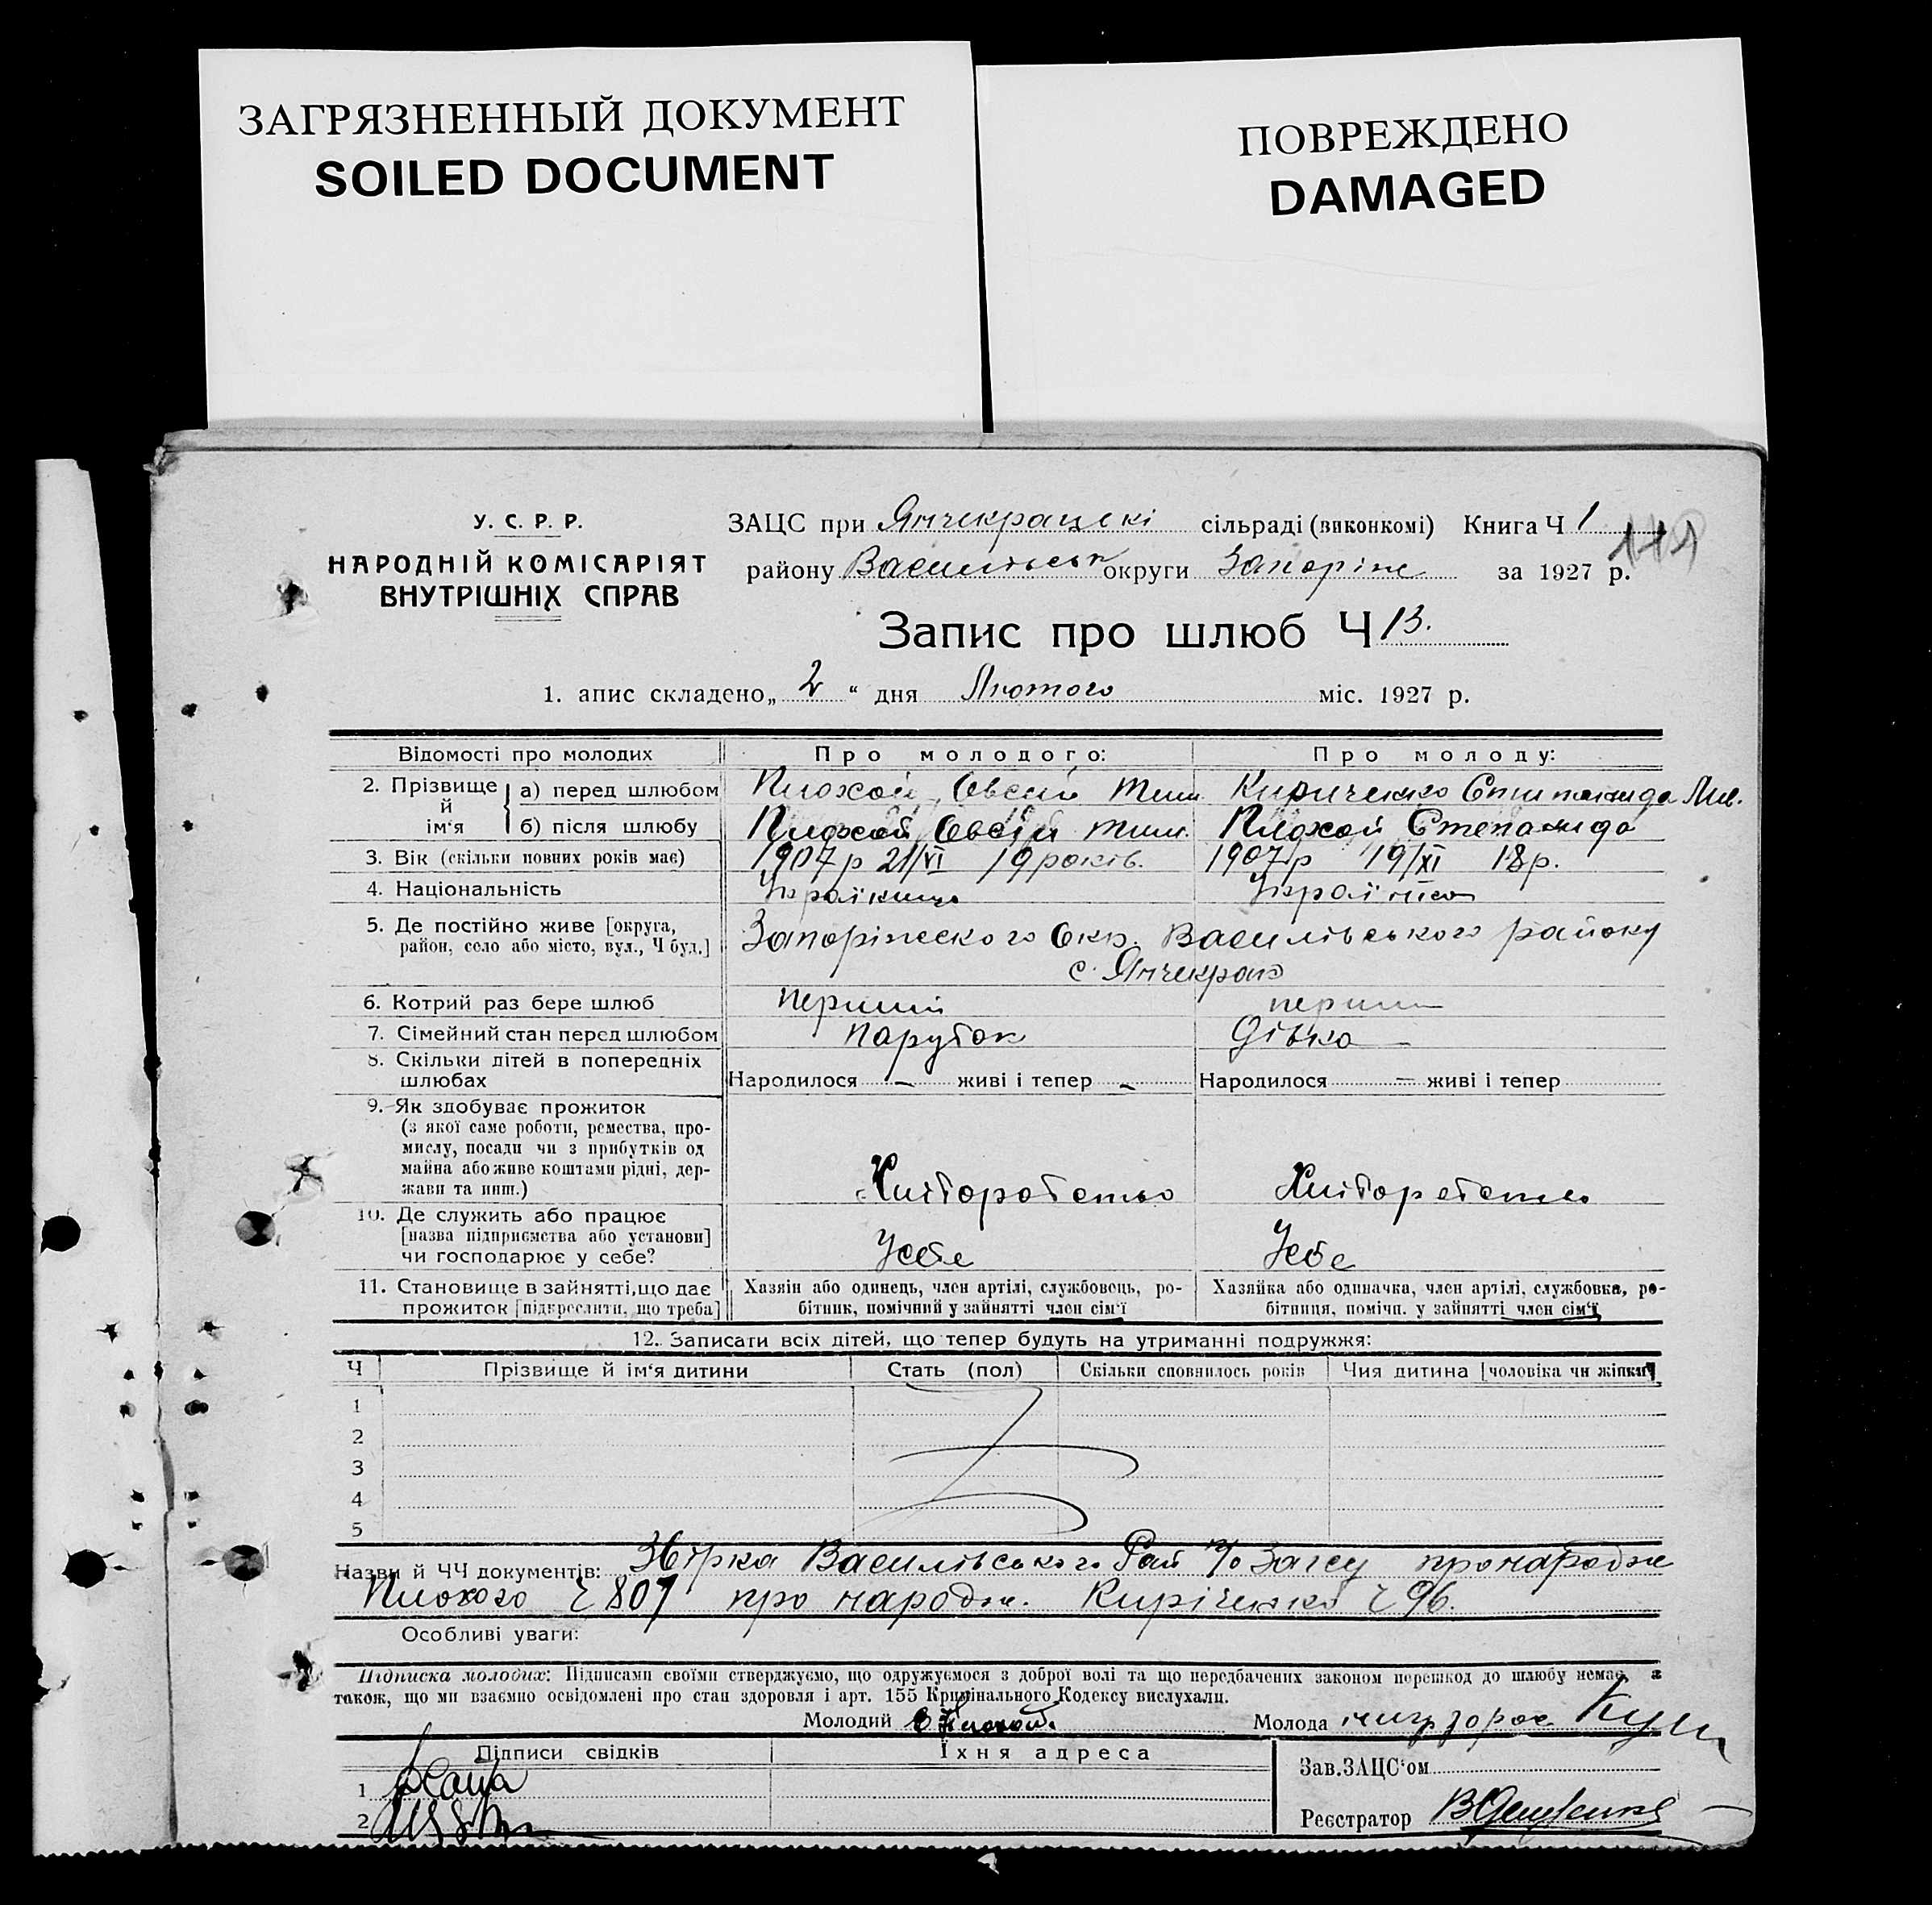 ЗАГРЯЗНЕННЫЙ ДОКУМЕНТ
SOILED DOCUMENT
ПОВРЕЖДЕНО
DAMAGED
У. С. Р. Р.
НАРОДНІЙ КОМІСАРІЯТ
ВНУТРІШНІХ СПРАВ
ЗАЦС при Янчекрацскі сільраді (виконкомі) Книга Ч 1
району Васильвськ округи Запоріж за 1927 р.
Запис про шлюб Ч 13.
1. апис складено „ 2 “ дня Лютого міс. 1927 р.
Відомості про молодих Про молодого: Про молоду:
2. Прізвище й ім‘я
а) перед шлюбом Плохой Овсій Тим. Кириченко Степанида
б) після шлюбу Плохой Овсій Тим. Плохой Степанида
3. Вік (скільки повних років має) 1907 р 21/VI 19 років. 1907 р 19/XI 18 р.
4. Національність Українець Українка
5. Де постійно живе [округа, Запоріжского Окр. Василівського району
район, село або місто, вул., Ч буд.]
с. Янчекрак
6. Котрий раз бере шлюб перший перши
7. Сімейний стан перед шлюбом парубок дівка
8. Скільки дітей в попередніх
шлюбах Народилося – живі і тепер – Народилося – живі і тепер
9. Як здобуває прожиток
(з якої саме роботи, ремества, про-
мислу, посади чи з прибутків од
майна або живе коштами рідні, дер-
жави та инш.) Хліборобство Хліборобство
10. Де служить або працює
[назва підприємства або установи]
чи господарює у себе? У себе У себе
11. Становище в зайнятті, що дає Хазяін або одинець, член артілі, службовець, ро- Хазяйка або одиначка, член артілі, службовка, ро-
прожиток [підкреслити, що треба] бітник, помічний у зайнятті член сім‘ї бітниця, помічн. у зайнятті член сім‘ї
12. Записати всіх дітей, що тепер будуть на утриманні подружжя:
Ч Прізвище й ім‘я дитини Стать (пол) Скільки сповнилось років Чия дитина [чоловіка чи жінки]
1
2
3
4
5
Назви й ЧЧ документів: Василівського Рай Загсу про народж
Плохого Ч 807 про народж. Киріченко Ч 96.
Особливі уваги:
Підписка молодих: Підписами своїми стверджуємо, що одружуємося з доброї волі та що передбачених законом перешкод до шлюбу немає, а
також, що ми взаємно освідомлені про стан здоровля і арт. 155 Кримінального Кодексу вислухали.
Молодий Є Плохой. Молода
Підписи свідків Їхня адреса Зав. ЗАЦС‘ом
1
2 Реєстратор